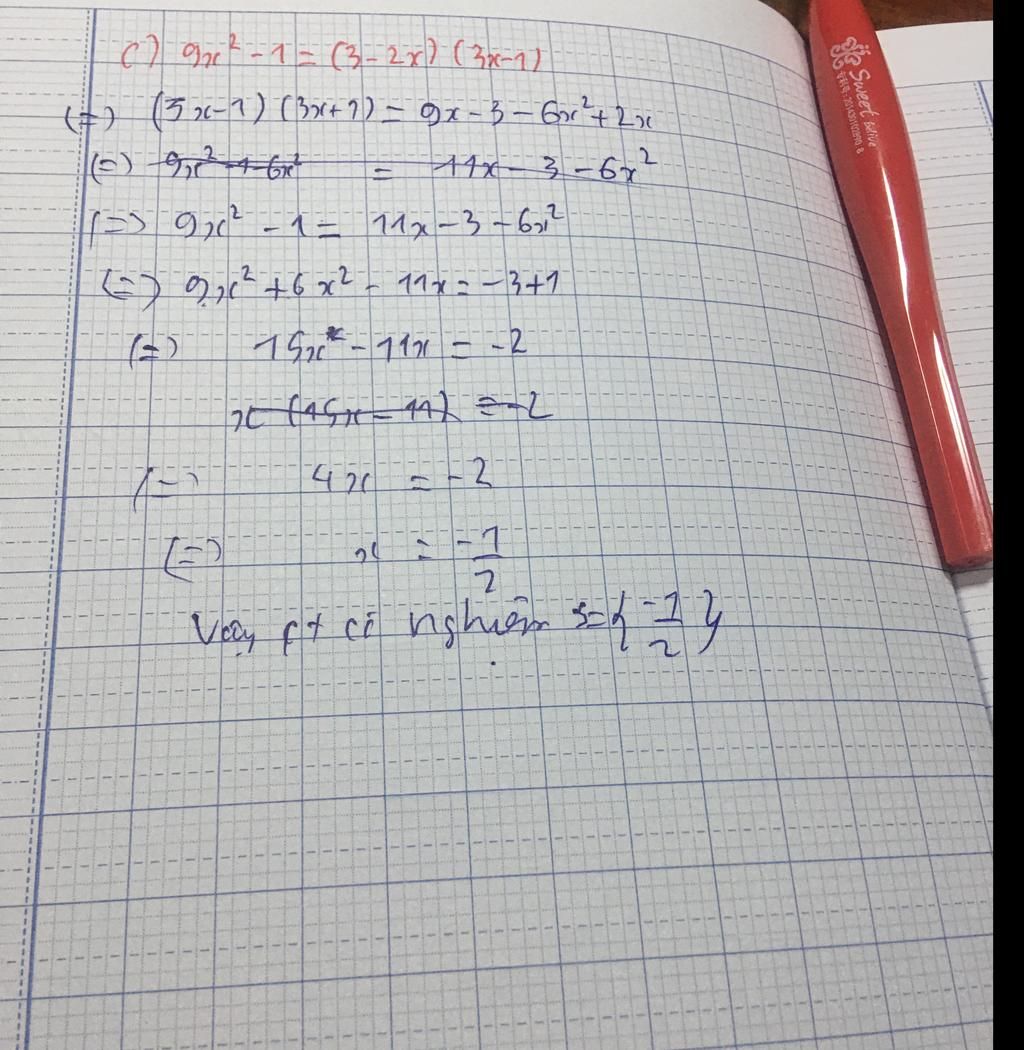 c) 9x² - 1 = (3 - 2x) (3x - 1)
(=) (3x - 1) (3x + 1) = 9x - 3 - 6x² + 2x
(=) 9x² + 6x² = 11x - 3 - 6x²
(=) 9x² - 1 = 11x - 3 - 6x²
(=) 9x² + 6x² - 11x = -3 + 1
(=) 15x² - 11x = -2
x (15x - 11) = -2
(=) 4x = -2
(=) x = -1/2
Vậy pt có nghiệm S = { -1/2 }
Sweet